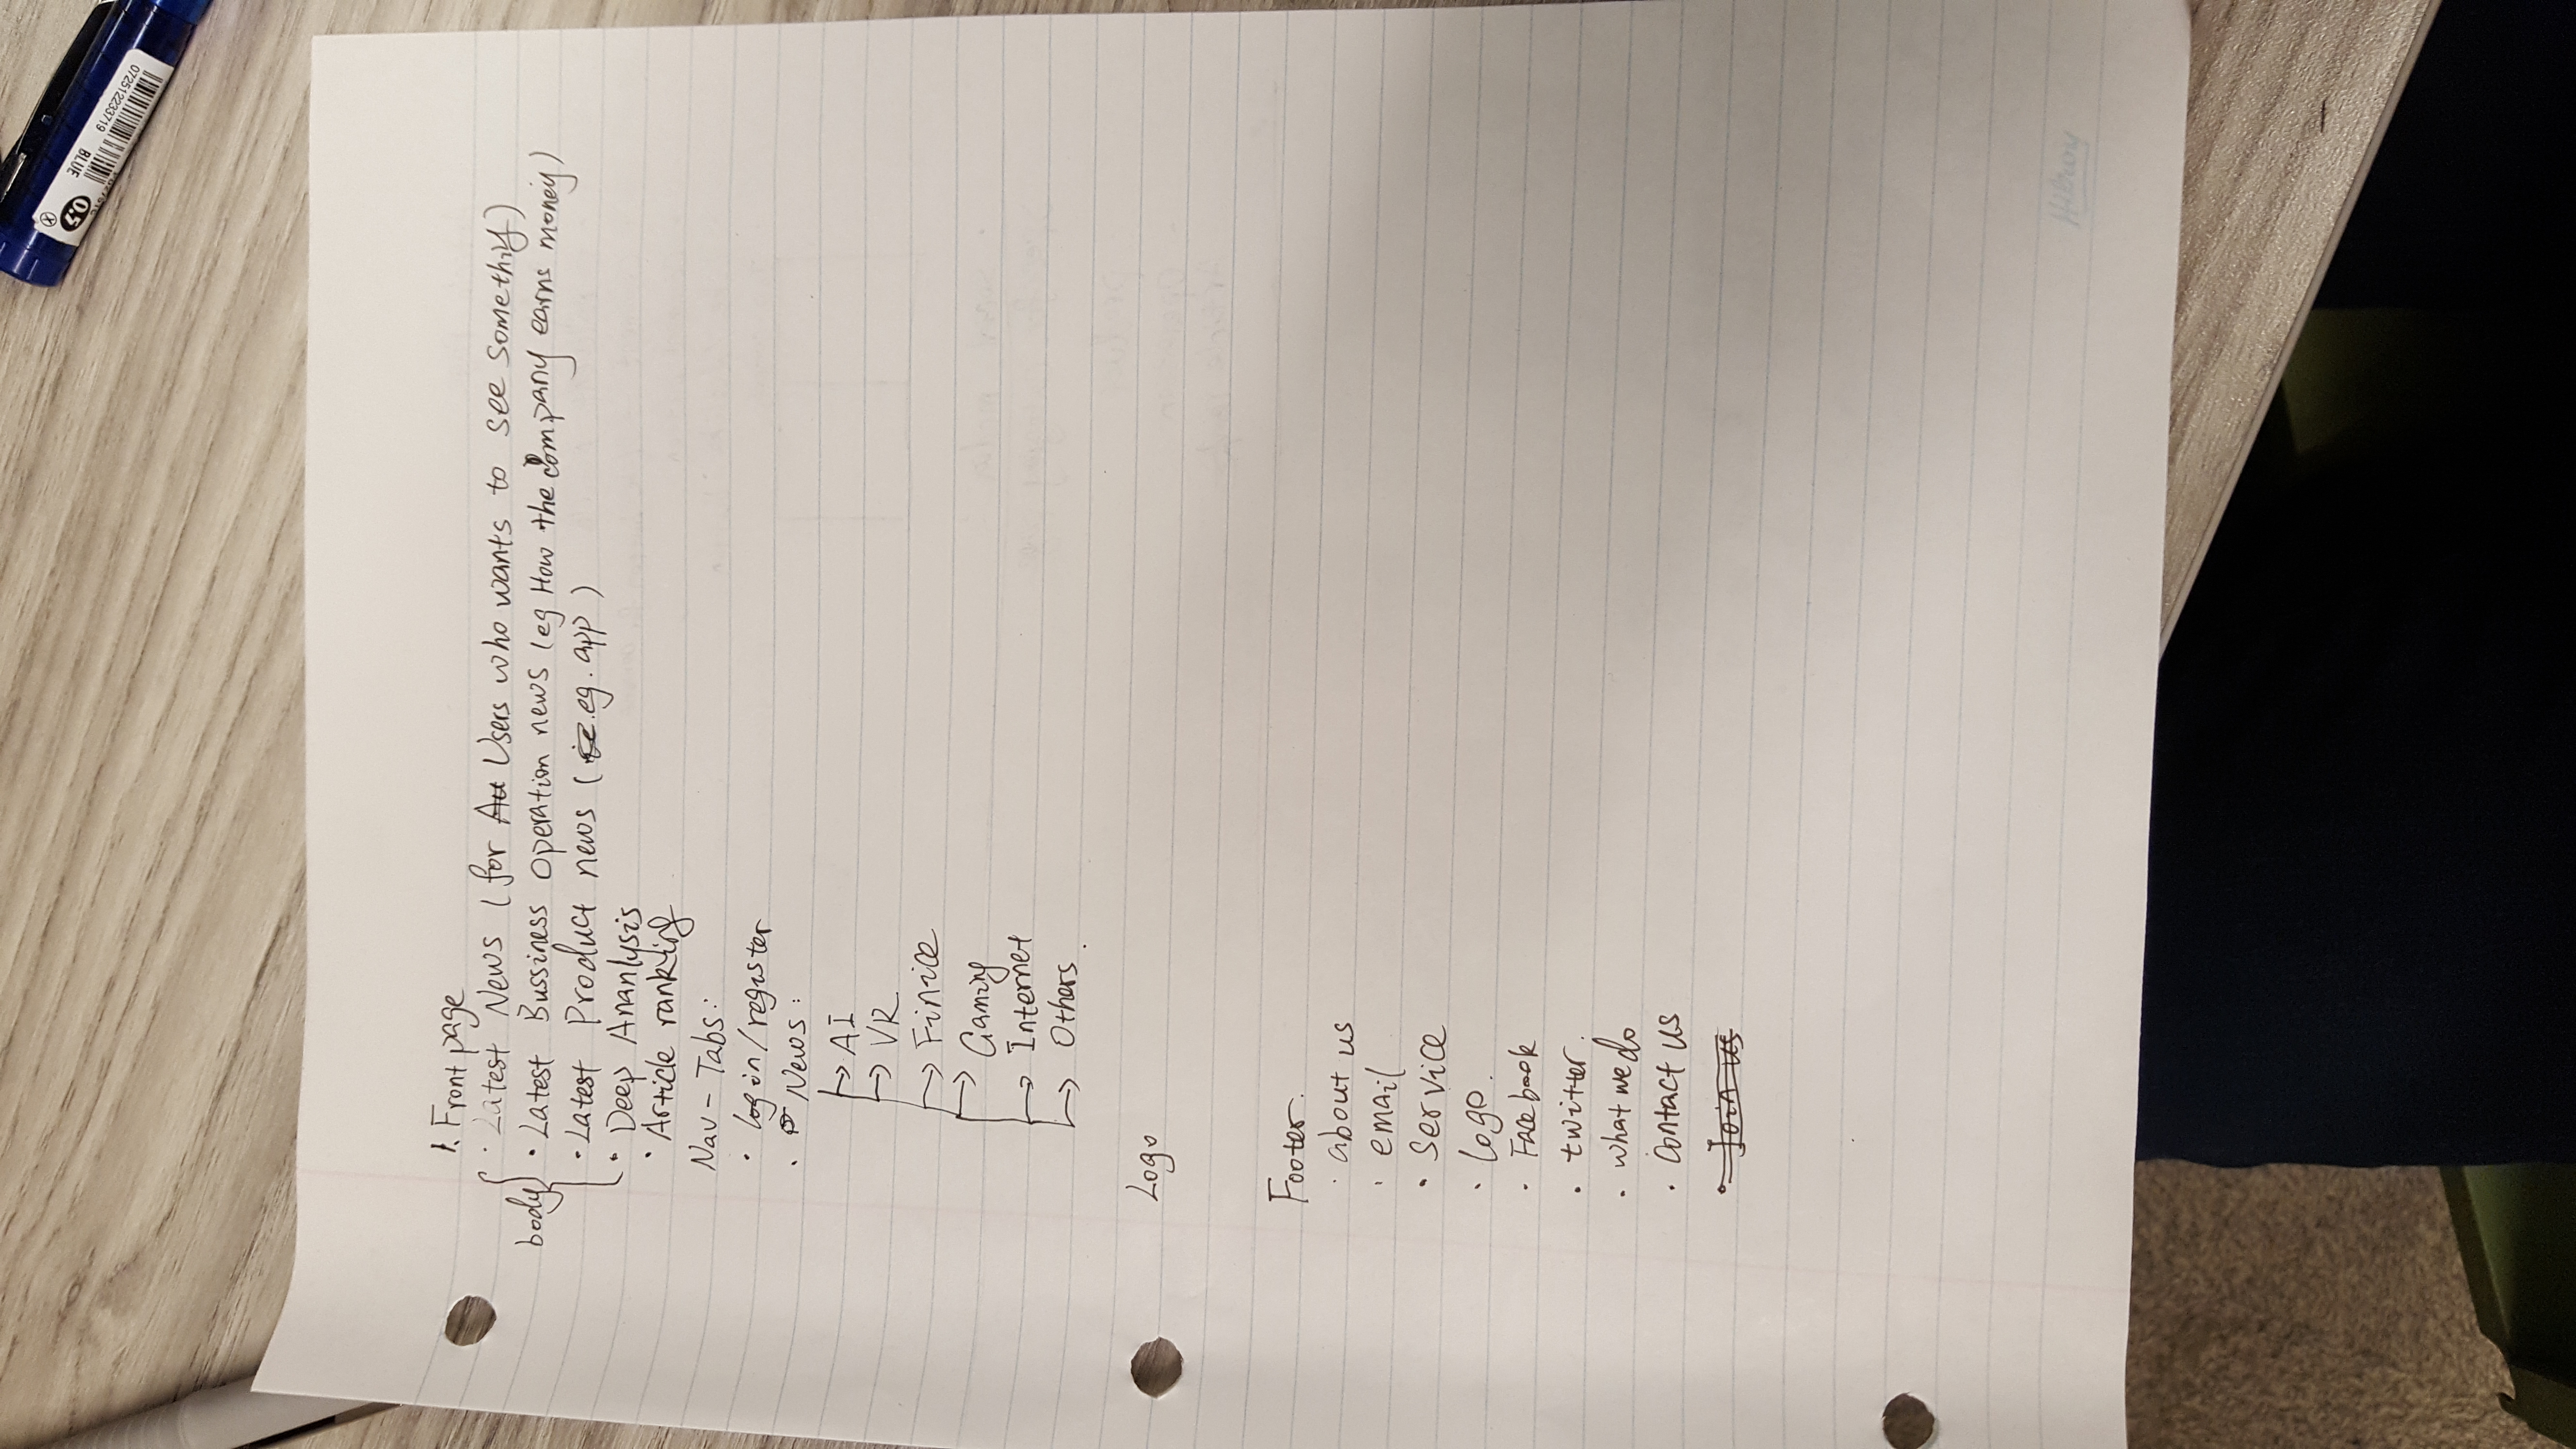 07251233719
0.7
BLUE
1. Front page
body
· Latest News (for Users who wants to see something)
· Latest Bussiness operation news (eg How the Company earns money)
· Latest Product news (eg. app)
· Deep Ananlysis
· Article ranking
Nav - Tabs:
· login/register
· News:
→ AI
→ VR
→ Finice
→ Gaming
→ Internet
→ Others.
Logo
Footer.
· about us
· email
· Service
· logo.
· Facebook
· twitter.
· what we do
· Contact us
· Join us
Hilroy